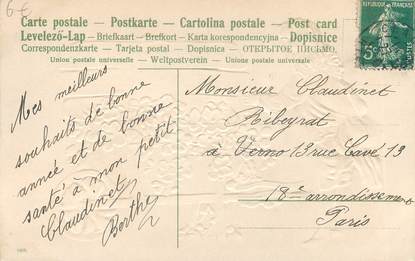 6€
Carte postale – Postkarte – Cartolina postale – Post card
Levelező-Lap – Briefkaart – Brefkort – Karta korespondencyjna – Dopisnice
Correspondenzkarte – Tarjeta postal – Dopisnica – ОТКРЫТОЕ ПИСЬМО.
Union postale universelle – Weltpostverein – Unione postale universale
5c
Mes meilleurs
souhaits de bonne
année et de bonne
santé à mon petit
Claudinet
Berthe
Monsieur Claudinet
Ribeyrat
à Verno 13 rue Cavé 13
18e arrondissement
Paris